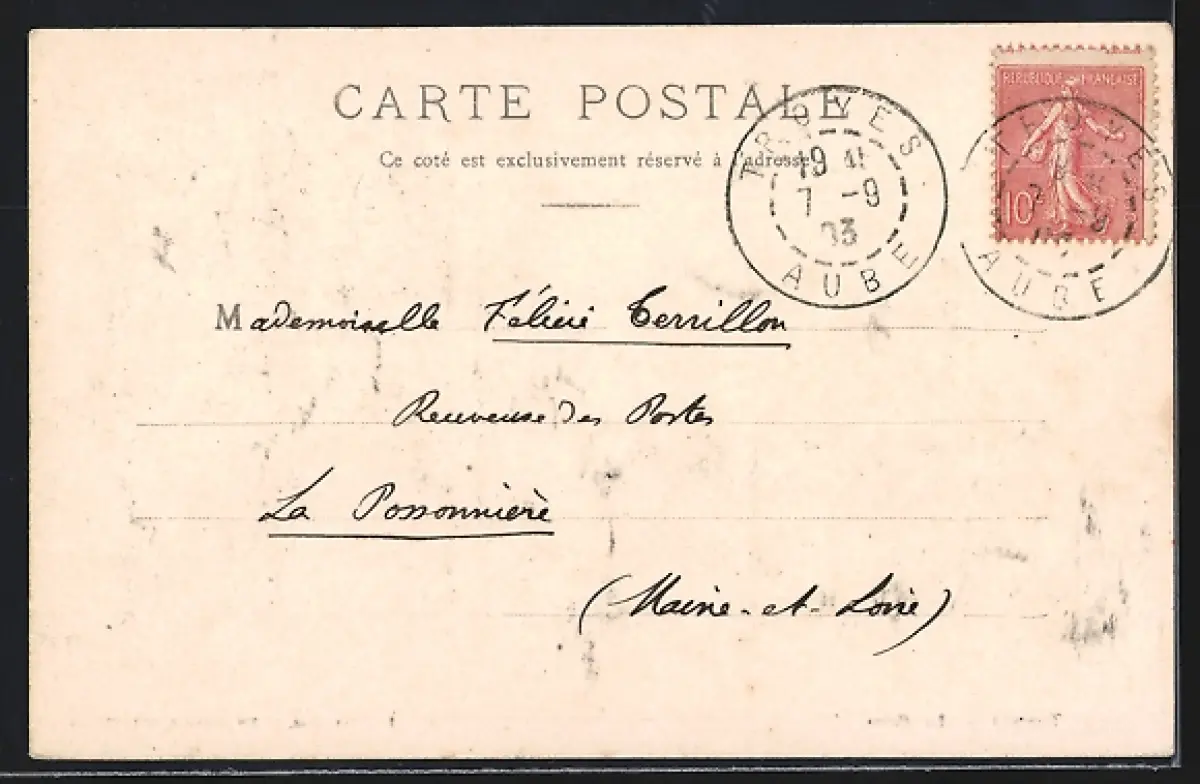 CARTE POSTALE
Ce coté est exclusivement réservé à l'adresse
RÉPUBLIQUE FRANÇAISE
10
TROYES
19
7 -9
03
AUBE
TROYES
AUBE
Mademoiselle Félicie Terrillon
Receveuse des Postes
La Possonnière
(Maine-et-Loire)